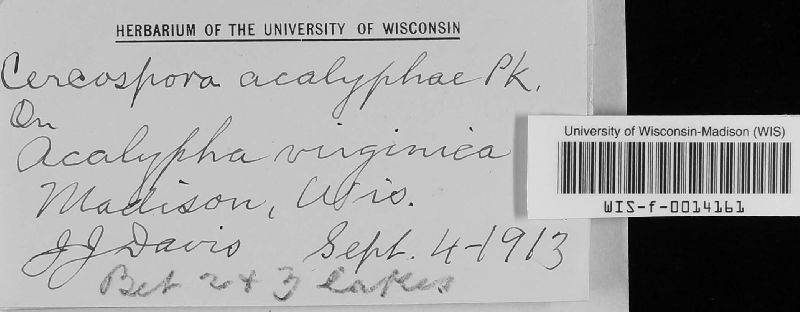 HERBARIUM OF THE UNIVERSITY OF WISCONSIN
Cercospora acalyphae Pk.
On
Acalypha virginica
Madison, Wis.
J J Davis Sept. 4-1913
Bet 2 & 3 lakes
University of Wisconsin-Madison (WIS)
WIS-f-0014161